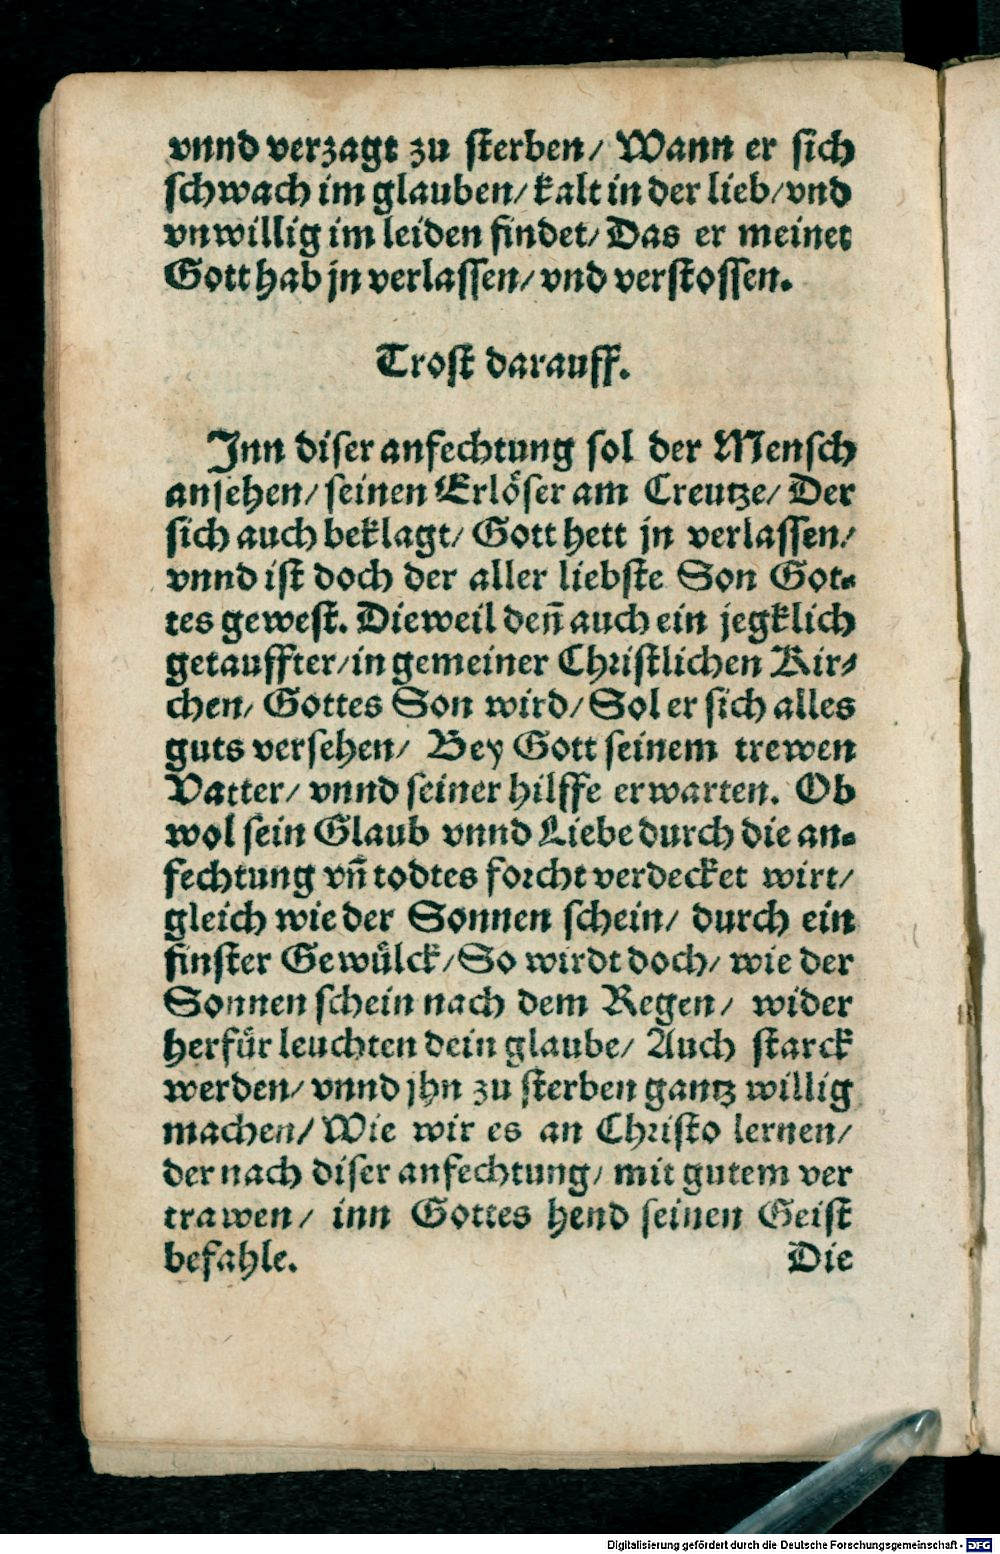 vnnd verzagt zu sterben/ Wann er sich
schwach im glauben/ kalt in der lieb/ vnd
vnwillig im leiden findet/ Das er meinet
Gott hab jn verlassen/ vnd verstossen.
Trost darauff.
Inn diser anfechtung sol der Mensch
ansehen/ seinen Erlöser am Creutze/ Der
sich auch beklagt/ Gott hett jn verlassen/
vnnd ist doch der aller liebste Son Got-
tes gewest. Dieweil deñ auch ein jegklich
getauffter/ in gemeiner Christlichen Kir-
chen/ Gottes Son wird/ Sol er sich alles
guts versehen/ Bey Gott seinem trewen
Vatter/ vnnd seiner hilffe erwarten. Ob
wol sein Glaub vnnd Liebe durch die an-
fechtung vñ todtes forcht verdecket wirt/
gleich wie der Sonnen schein/ durch ein
finster Gewülck/ So wirdt doch/ wie der
Sonnen schein nach dem Regen/ wider
herfür leuchten dein glaube/ Auch starck
werden/ vnnd jhn zu sterben gantz willig
machen/ Wie wir es an Christo lernen/
der nach diser anfechtung/ mit gutem ver
trawen/ inn Gottes hend seinen Geist
befahle. Die
Digitalisierung gefördert durch die Deutsche Forschungsgemeinschaft - DFG